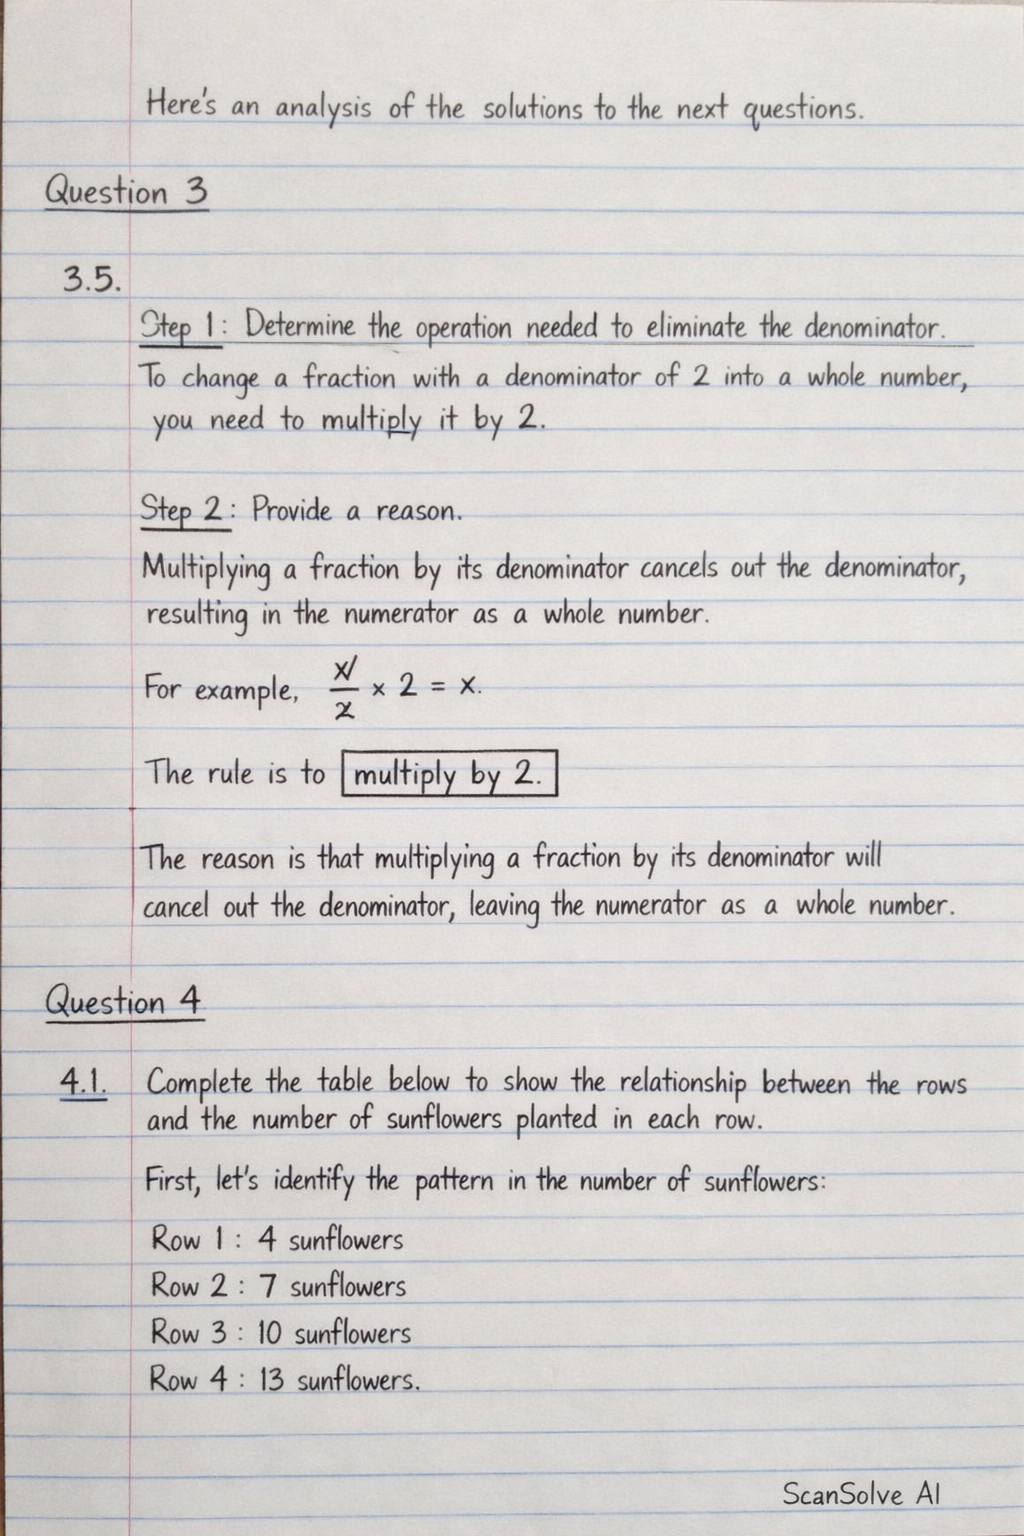 Here's an analysis of the solutions to the next questions.
Question 3
3.5.
Step 1: Determine the operation needed to eliminate the denominator.
To change a fraction with a denominator of 2 into a whole number,
you need to multiply it by 2.
Step 2: Provide a reason.
Multiplying a fraction by its denominator cancels out the denominator,
resulting in the numerator as a whole number.
For example, x/2 × 2 = x.
The rule is to multiply by 2.
The reason is that multiplying a fraction by its denominator will
cancel out the denominator, leaving the numerator as a whole number.
Question 4
4.1. Complete the table below to show the relationship between the rows
and the number of sunflowers planted in each row.
First, let's identify the pattern in the number of sunflowers:
Row 1 : 4 sunflowers
Row 2 : 7 sunflowers
Row 3 : 10 sunflowers
Row 4 : 13 sunflowers.
ScanSolve AI